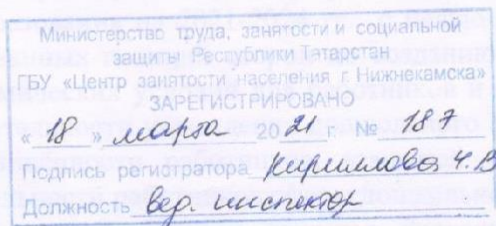 Министерство труда, занятости и социальной
защиты Республики Татарстан
ГБУ «Центр занятости населения г. Нижнекамска»
ЗАРЕГИСТРИРОВАНО
« 18 » марта 2021 г. № 187
Подпись регистратора Кириллова Ч.В
Должность вед. инспектор